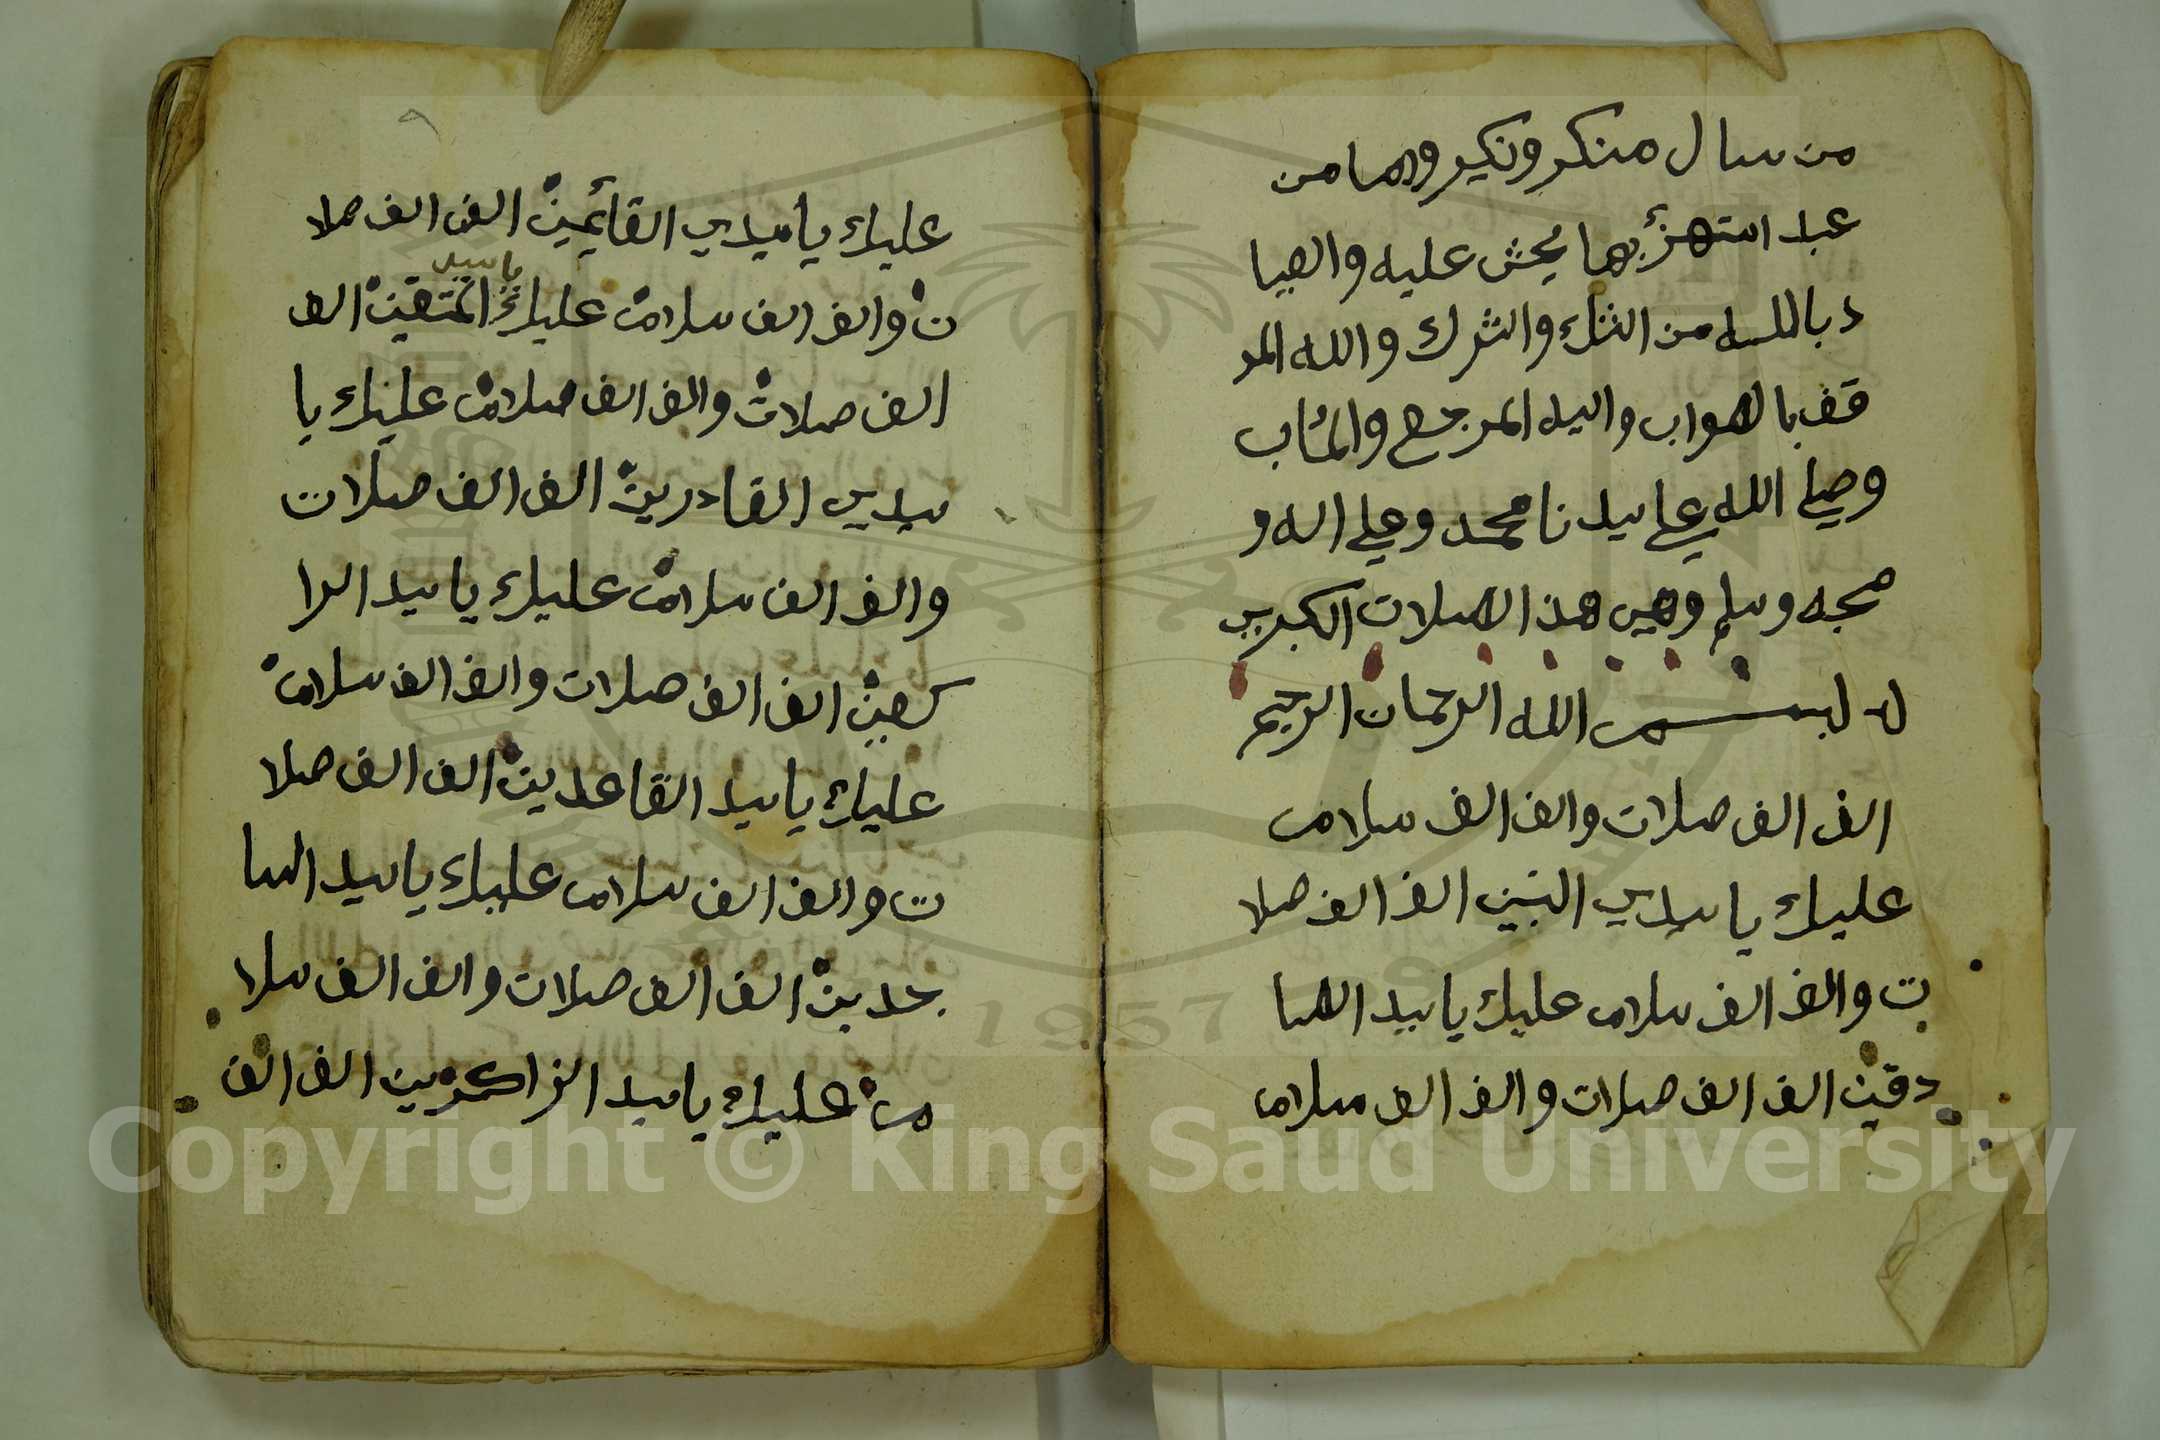 من سال منكر ونكير واما من
عبد استهزئ بها يخش عليه والعيا
ذ بالله من الشك والشرك والله المو
فق بالصواب واليه المرجع والمئاب
وصلي الله علي سيدنا محمد وعلي اله و
صحبه وسلم وهي هذ الصلات الكبري
بسم الله الرحمان الرحيم
الف الف صلات والف الف سلام
عليك يا سيدي النبين الف الف صلا
ت والف الف سلام عليك يا سيد الصا
دقين الف الف صلات والف الف سلام
عليك يا سيدي القائمين الف الف صلا
ت والف الف سلام عليك يا سيد المتقين الف
الف صلات والف الف سلام عليك يا
سيدي القادرين الف الف صلات
والف الف سلام عليك يا سيد الرا
كعين الف الف صلات والف الف سلام
عليك يا سيد القاعدين الف الف صلا
ت والف الف سلام عليك يا سيد السا
جدين الف الف صلات والف الف سلا
م عليك يا سيد الزاكرين الف الف
1957
Copyright © King Saud University